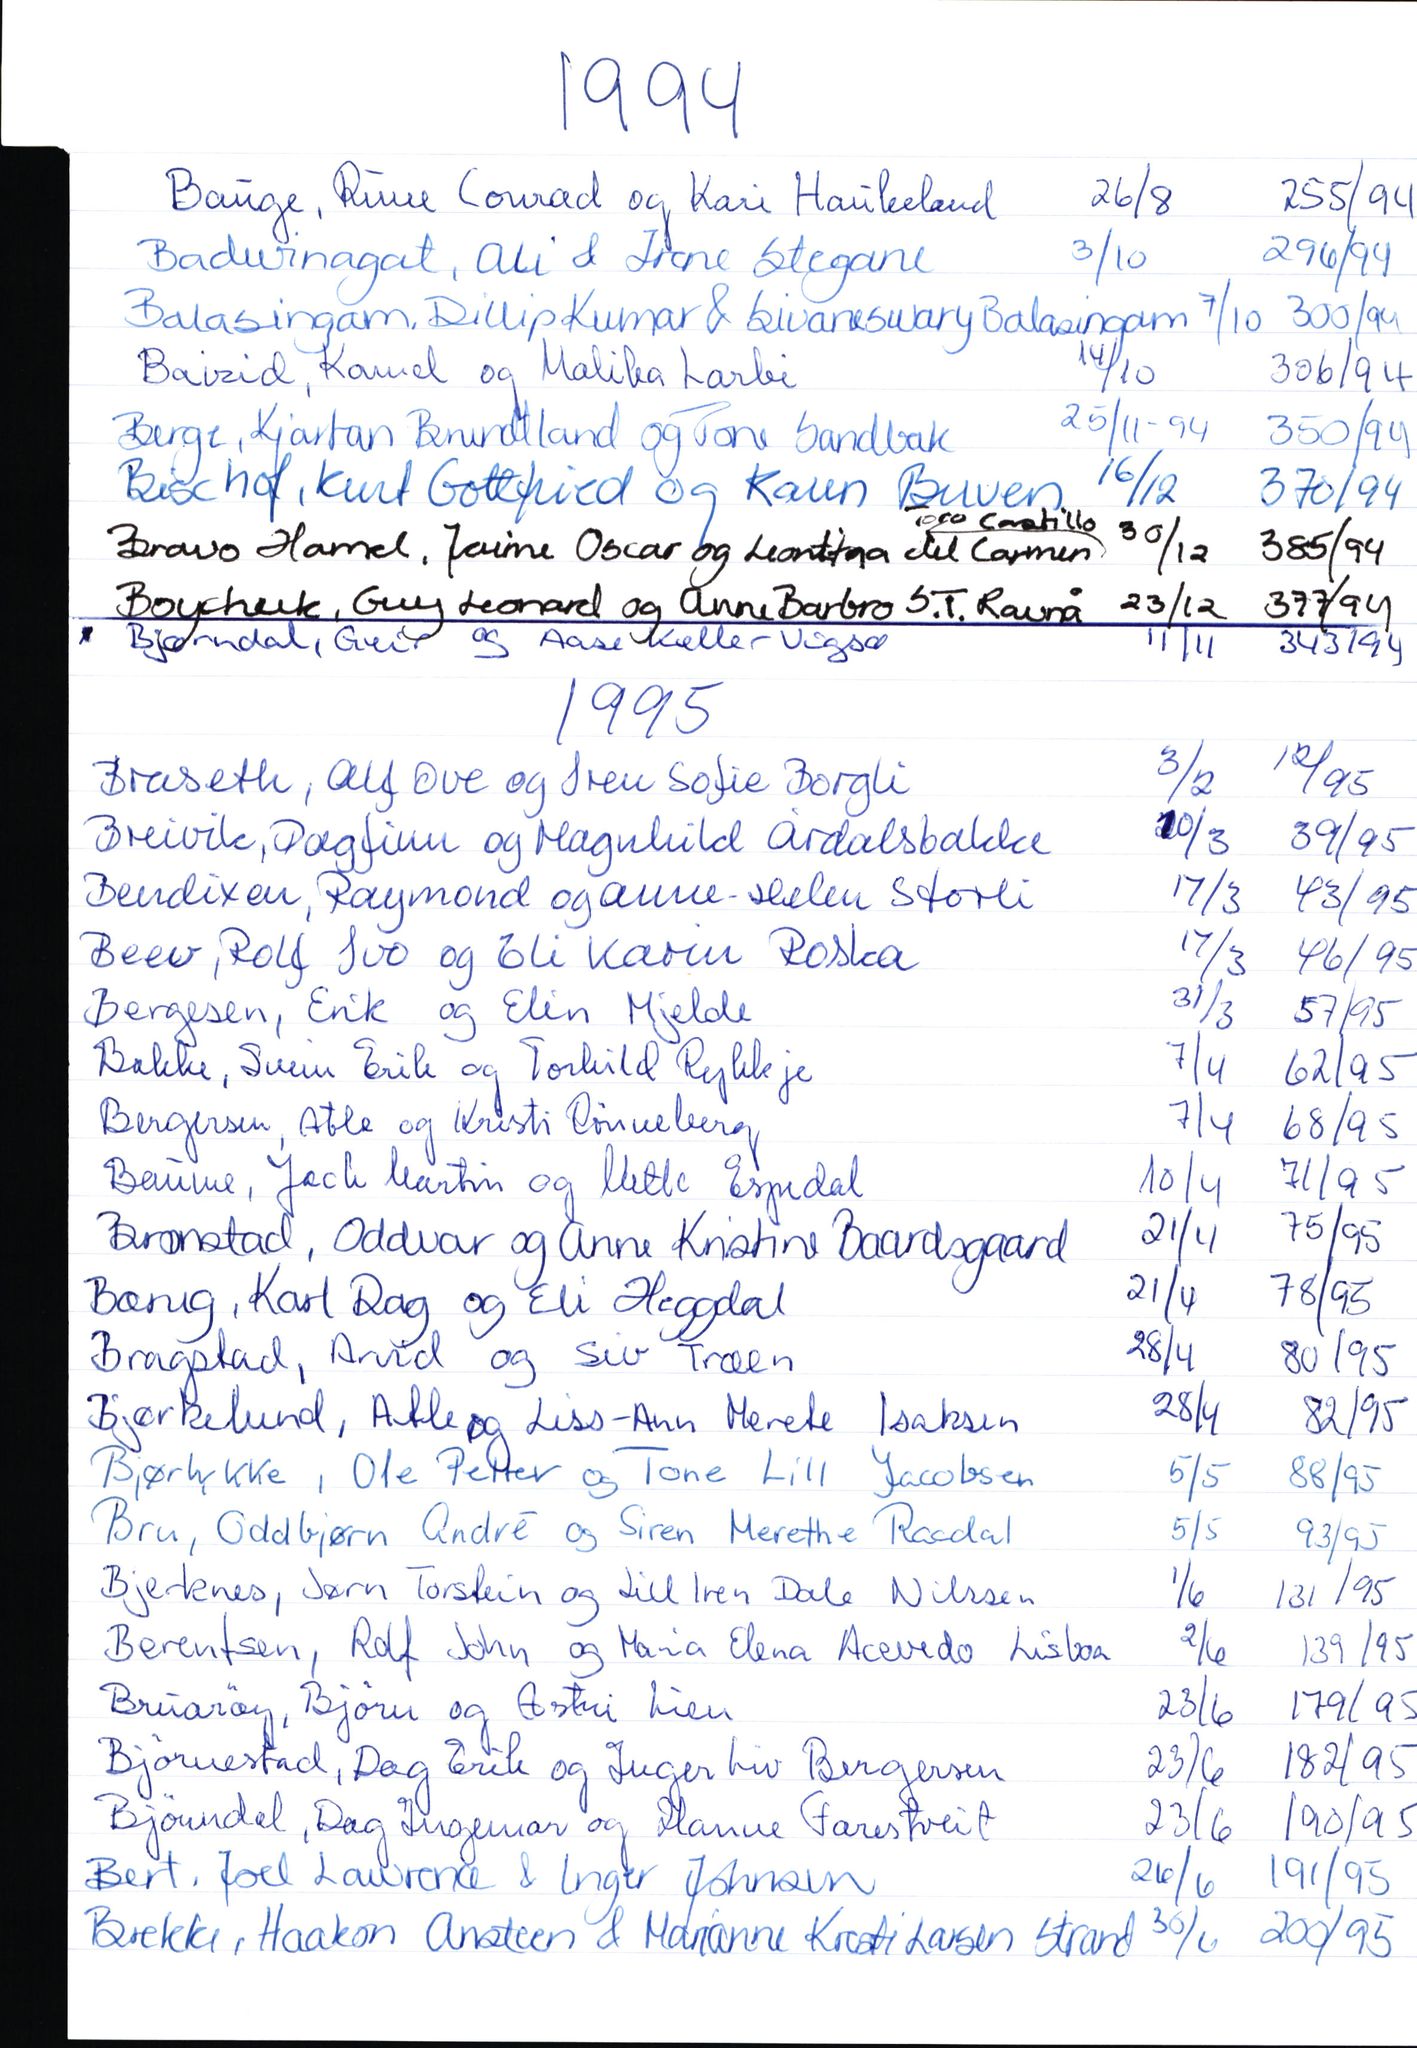 1994
Bauge, Rune Conrad og Kari Haukeland 26/8 255/94
Badwinagat, Ali & Irene Stegane 3/10 296/94
Balasingam, Dillip Kumar & Sivaneswary Balasingam 7/10 300/94
Baizid, Kamel og Malika Larbi 14/10 306/94
Berge, Kjartan Brundtland og Tone Sandbak 25/11-94 350/94
Bischof, Kurt Gottfried og Karin Buven 16/12 370/94
Toro Castillo
Bravo Hamel, Jaime Oscar og Leontina del Carmen 30/12 385/94
Boychuk, Guy Leonard og Anne Barbro S.T. Raunå 23/12 377/94
* Bjørndal, Geir og Aase Keller-Vigsø 11/11 343/94
1995
Braseth, Alf Ove og Iren Sofie Borgli 3/2 12/95
Breivik, Dagfinn og Magnhild Årdalsbakke 10/3 39/95
Bendixen, Raymond og Anne-Helen Storli 17/3 43/95
Beew, Rolf Ivo og Eli Karin Roska 17/3 46/95
Bergesen, Erik og Elin Mjelde 31/3 57/95
Bakke, Svein Erik og Torhild Rykkje 7/4 62/95
Bergersen, Atle og Kristi Rönneberg 7/4 68/95
Baume, Jack Martin og Mette Espedal 10/4 71/95
Brønstad, Oddvar og Anne Kristine Baardsgaard 21/4 75/95
Bærug, Karl Dag og Eli Heggdal 21/4 78/95
Bragstad, Arvid og Siv Træen 28/4 80/95
Bjørkelund, Atle og Liss-Ann Merete Isaksen 28/4 82/95
Bjørlykke, Ole Petter og Tone Lill Jacobsen 5/5 88/95
Bru, Oddbjørn André og Siren Merethe Raadal 5/5 93/95
Bjerknes, Jørn Torstein og Lill Iren Dale Nilssen 1/6 131/95
Berentsen, Rolf John og Maria Elena Acevedo Lisboa 2/6 139/95
Bruaröy, Björn og Astri Lien 23/6 179/95
Björnestad, Dag Erik og Inger Liv Bergersen 23/6 182/95
Björndal, Dag Ingemar og Hanne Farestveit 23/6 190/95
Bert, Joel Lawrence & Inger Johnsen 26/6 191/95
Brekke, Haakon Ansteen & Marianne Kristi Larsen Strand 30/6 200/95